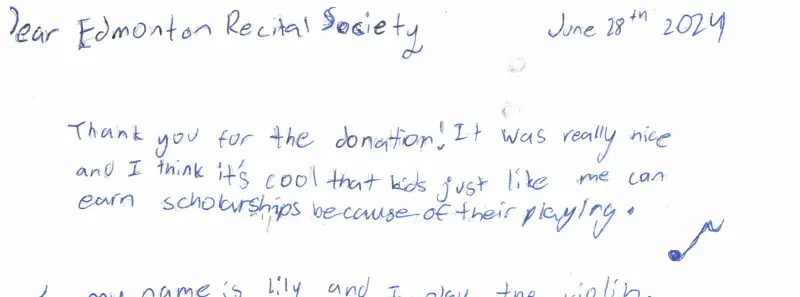 Dear Edmonton Recital Society
June 28th 2024
Thank you for the donation! It was really nice
and I think it's cool that kids just like me can
earn scholarships because of their playing.
my name is Lily and I play the violin.